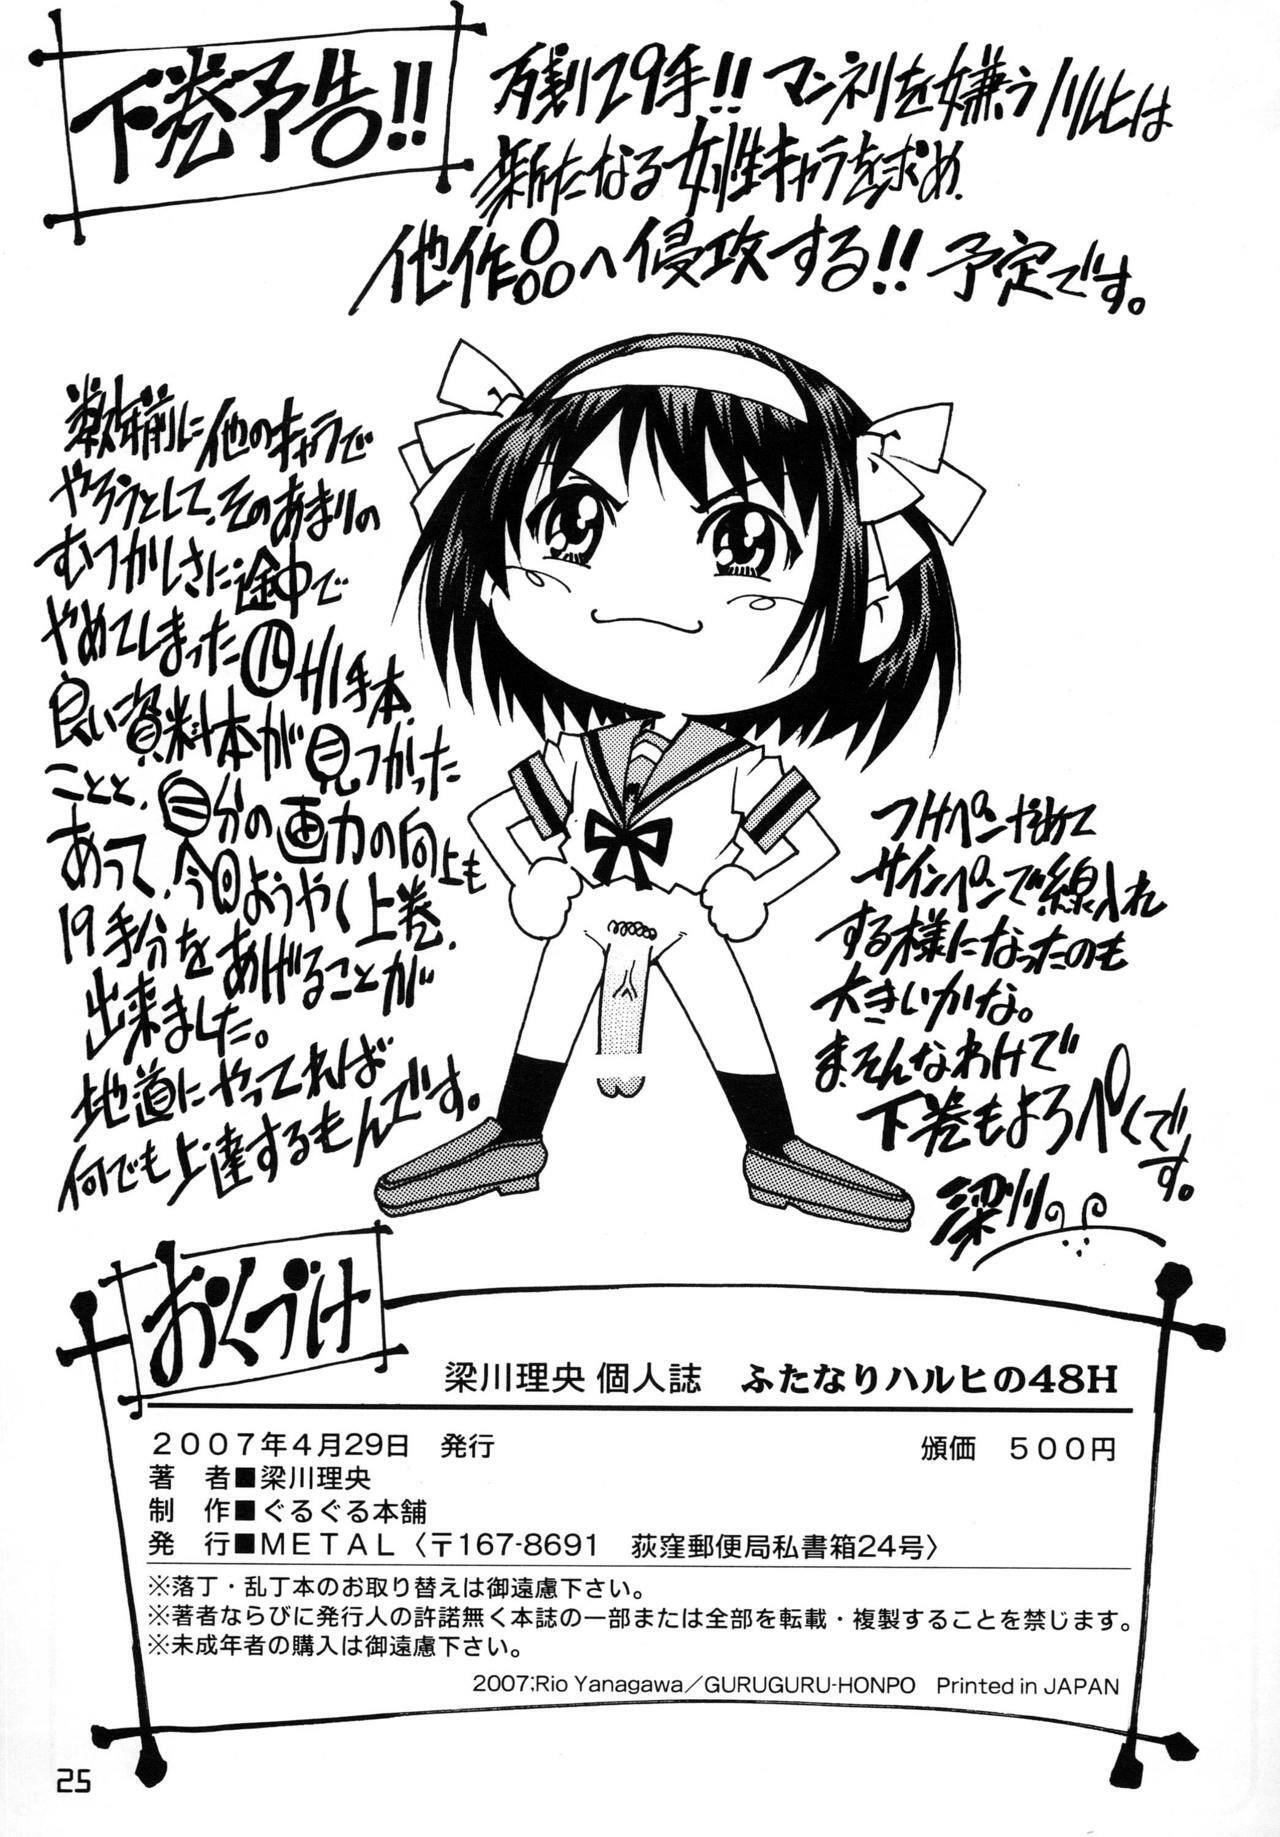 下巻予告!!
残り29手!! マンネリを嫌うハルヒは
新たなる女性キャラを求め、
他作品へ侵攻する!! 予定です。
数年前に他のキャラで
やろうとして、そのあまりの
むつかしさに途中で
やめてしまった四十八手本。
良い資料本が見つかった
ことと、自分の画力の向上も
あって、今回ようやく上巻、
19手分をあげることが
出来ました。
地道にやってれば
何でも上達するもんです。
つけペンやめて
サインペンで線入れ
する様になったのも
大きいかな。
ま、そんなわけで
下巻もよろぺくで
す。
梁川。
おくづけ
梁川理央 個人誌 ふたなりハルヒの48H
2007年4月29日 発行 頒価 500円
著 者■梁川理央
制 作■ぐるぐる本舗
発 行■METAL〈〒167-8691 荻窪郵便局私書箱24号〉
※落丁・乱丁本のお取り替えは御遠慮下さい。
※著者ならびに発行人の許諾無く本誌の一部または全部を転載・複製することを禁じます。
※未成年者の購入は御遠慮下さい。
2007:Rio Yanagawa／GURUGURU-HONPO Printed in JAPAN
25